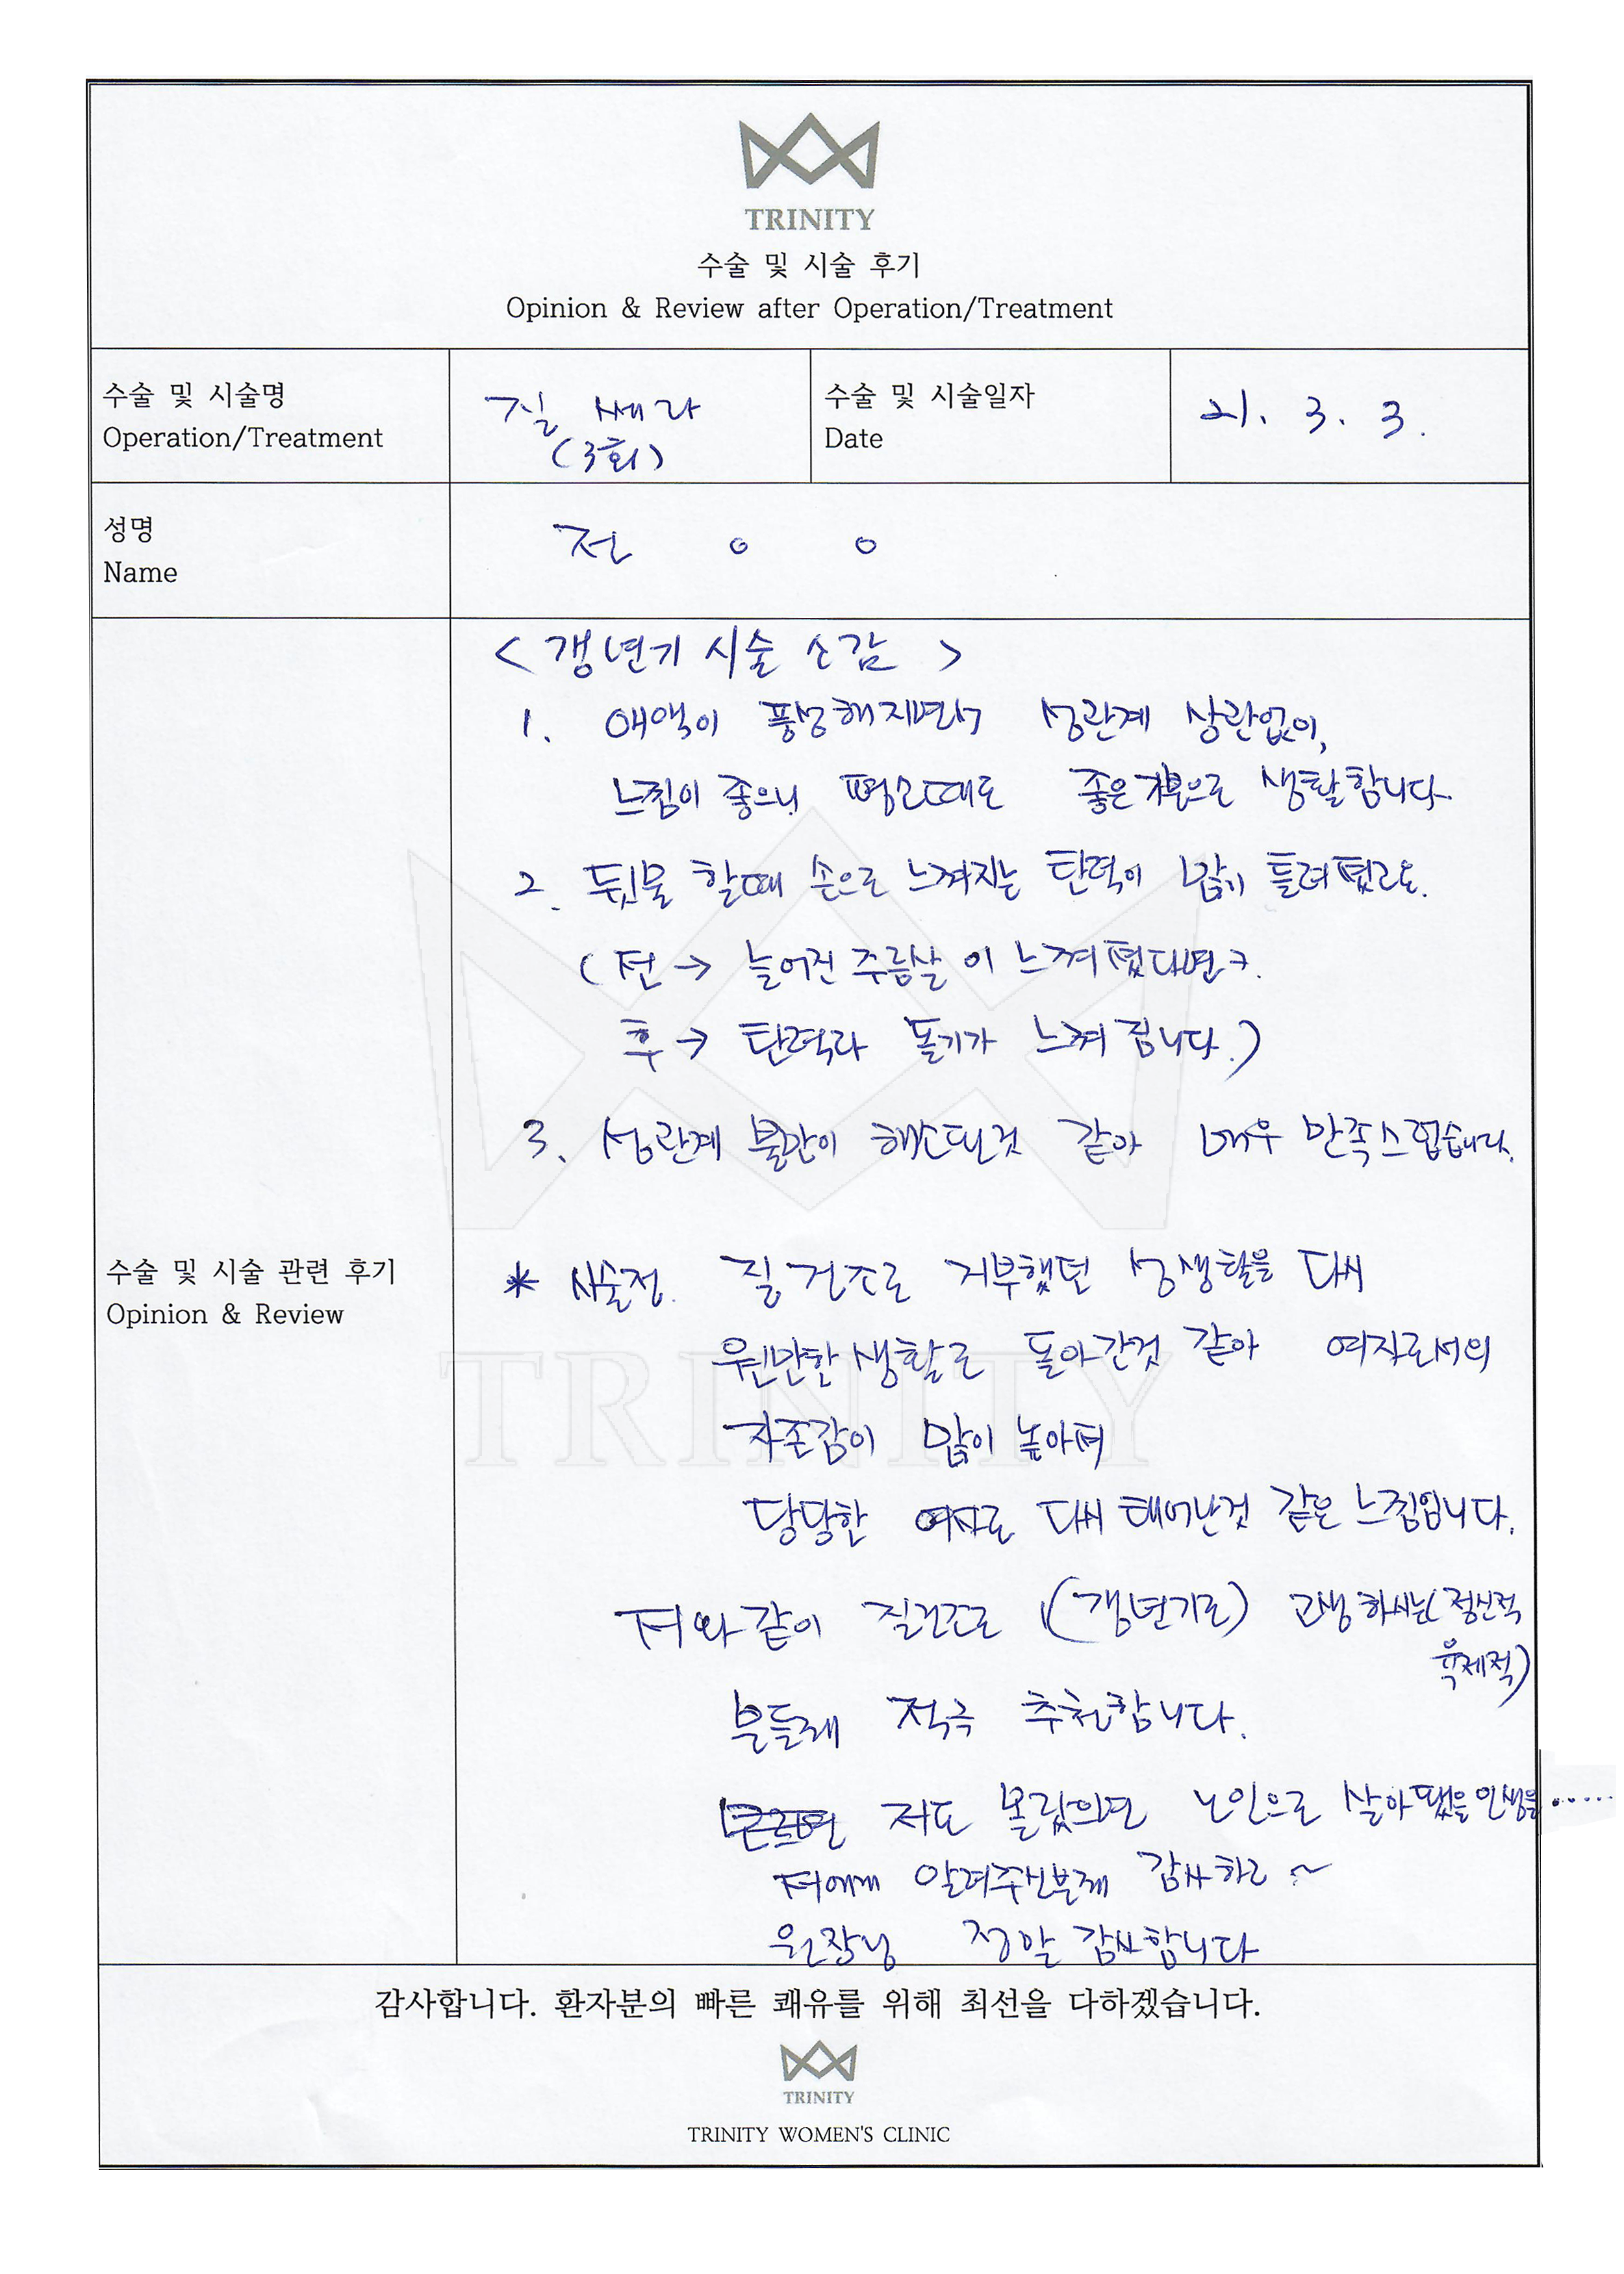 TRINITY
수술 및 시술 후기
Opinion & Review after Operation/Treatment
수술 및 시술명
Operation/Treatment
질 쎄라
(3회)
수술 및 시술일자
Date
21. 3. 3.
성명
Name
전 o o
< 갱년기 시술 소감 >
1. 애액이 풍성해지면서 성관계 상관없이,
느낌이 좋으니 평소때도 좋은 기분으로 생활합니다.
2. 뒷물 할때 손으로 느껴지는 탄력이 많이 틀려졌고요.
(전 → 늘어진 주름살이 느껴졌다면
후 → 탄력과 돌기가 느껴집니다.)
3. 성관계 불만이 해소된것 같아 매우 만족스럽습니다.
수술 및 시술 관련 후기
Opinion & Review
* 시술전. 질 건조로 거부했던 성생활을 다시
원만한 생활로 돌아간것 같아 여자로서의
자존감이 많이 높아져
당당한 여자로 다시 태어난것 같은 느낌입니다.
저와 같이 질건조로 (갱년기로) 고생하시는 (정신적
육체적)
분들께 적극 추천합니다.
저도 몰랐으면 노인으로 살아 됐을 인생을.....
저에게 알려주신분께 감사하고 ~
원장님 정말 감사합니다
TRINITY
감사합니다. 환자분의 빠른 쾌유를 위해 최선을 다하겠습니다.
TRINITY
TRINITY WOMEN'S CLINIC